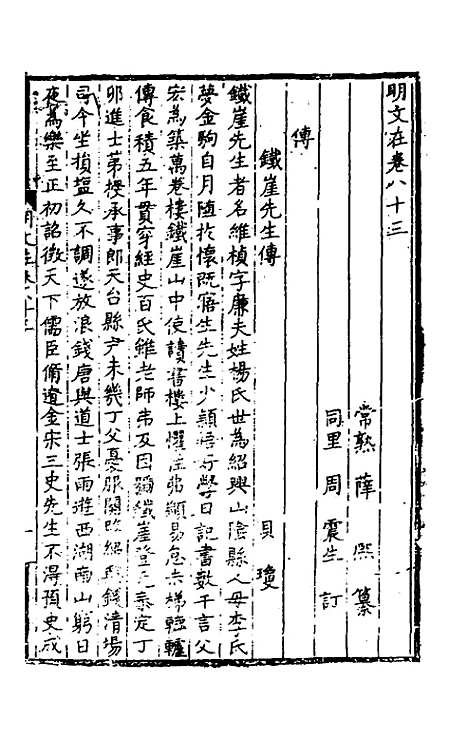 明文在卷八十三
常熟 薛 熙 纂
同里 周 震生 訂
傳
鐵崖先生傳 貝瓊
鐵崖先生者名維楨字廉夫姓楊氏世為紹興山陰縣人母李氏
夢金駒自月墮於懷既寤生先生少穎悟好學日記書數千言父
宏為築萬卷樓鐵崖山中使讀書樓上懼弗顓易怠去梯轆轤
傳食積五年貫穿經史百氏雖老師弗及因號鐵崖登泰定丁
卯進士第授承事郎天台縣尹未幾丁父憂服闋改紹興錢清場
司令坐損鹽久不調遂放浪錢唐與道士張雨遊西湖南山窮日
夜為樂至正初詔徵天下儒臣脩遼金宋三史先生不得預史成
明文在卷八十三
一